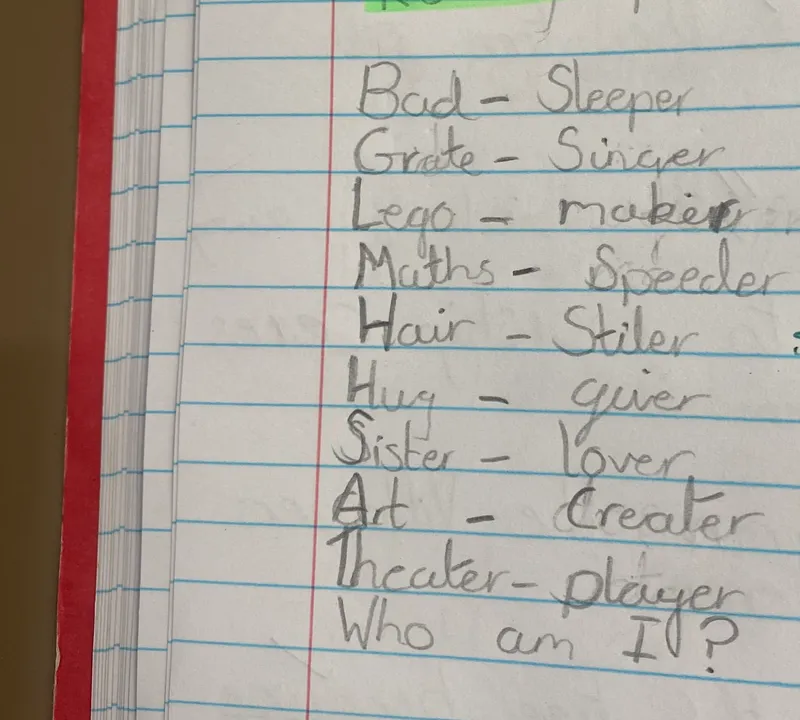 Bad - Sleeper
Grate - Singer
Lego - maker
Maths - Speeder
Hair - Stiler
Hug - giver
Sister - lover
Art - Creater
Theater - player
Who am I?